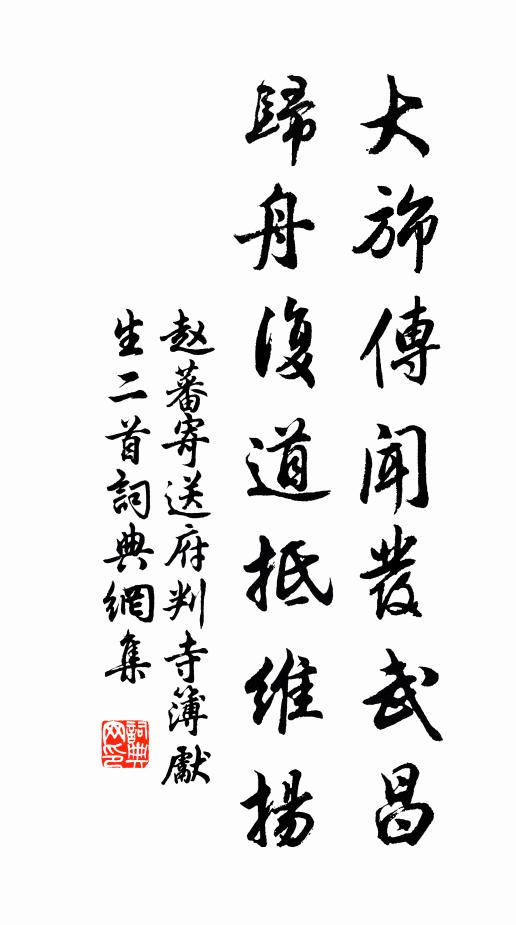 大斾傳聞發武昌
歸舟復道抵維揚
赵蕃寄送府判寺簿獻
生二首詞典網集
詞典
网印